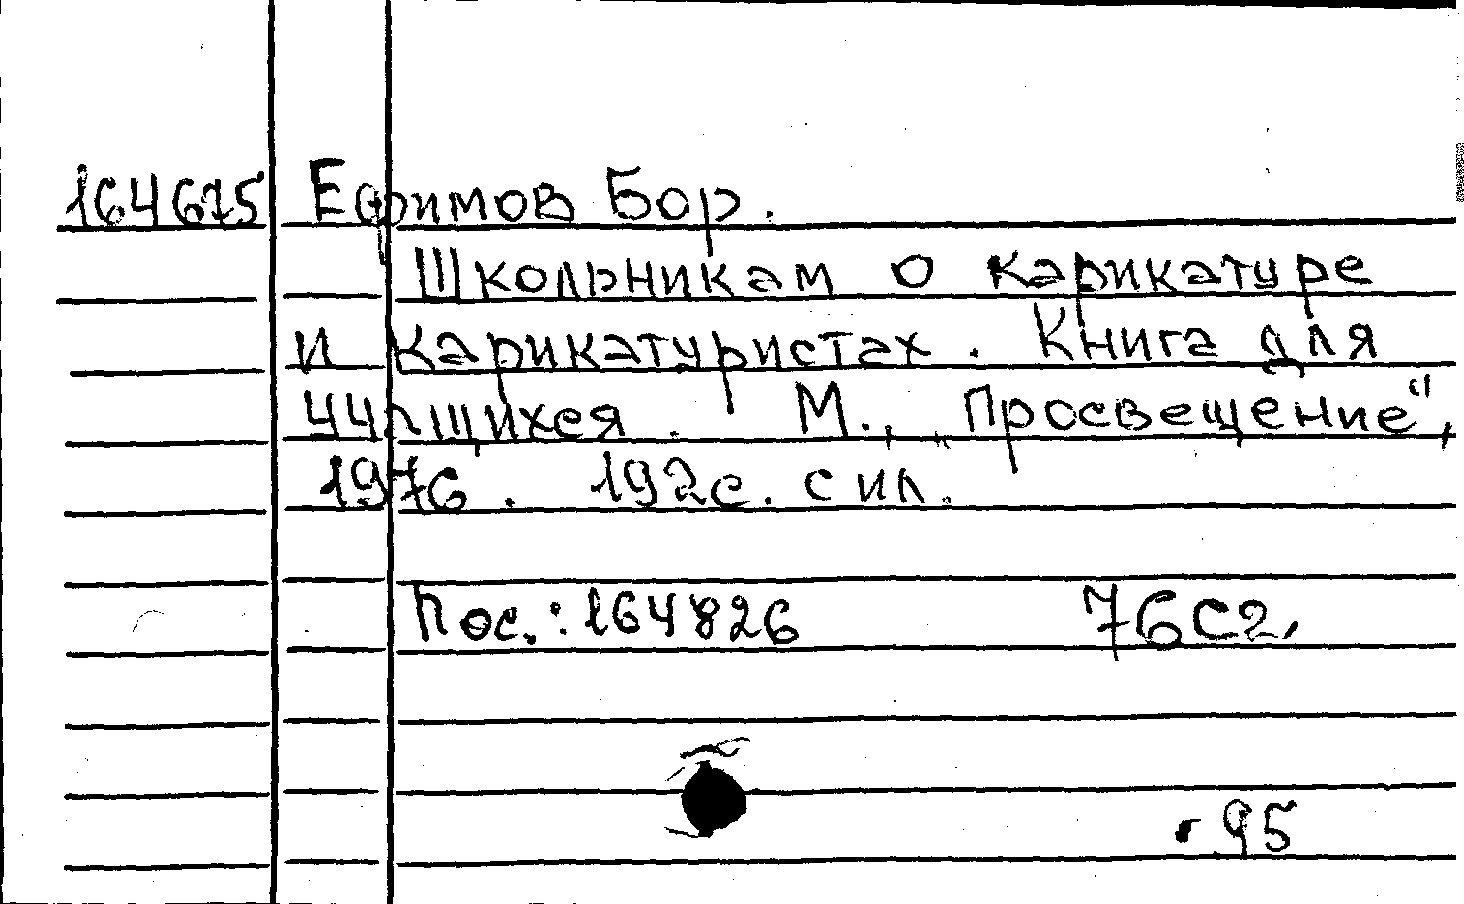 164675 Ефимов Бор.
Школьникам о карикатуре
и карикатуристах. Книга для
учащихся. М., „Просвещение",
1976. 192с. с ил.
Пос.: 164826 76С2,
95